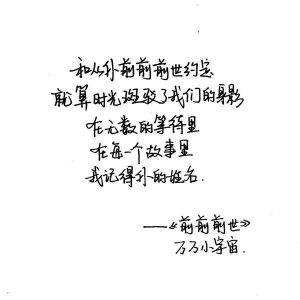 和你前前前世约定
就算时光斑驳了我们的身影
在无数的等待里
在每一个故事里
我记得你的姓名.
——《前前前世》
万万小宇宙.